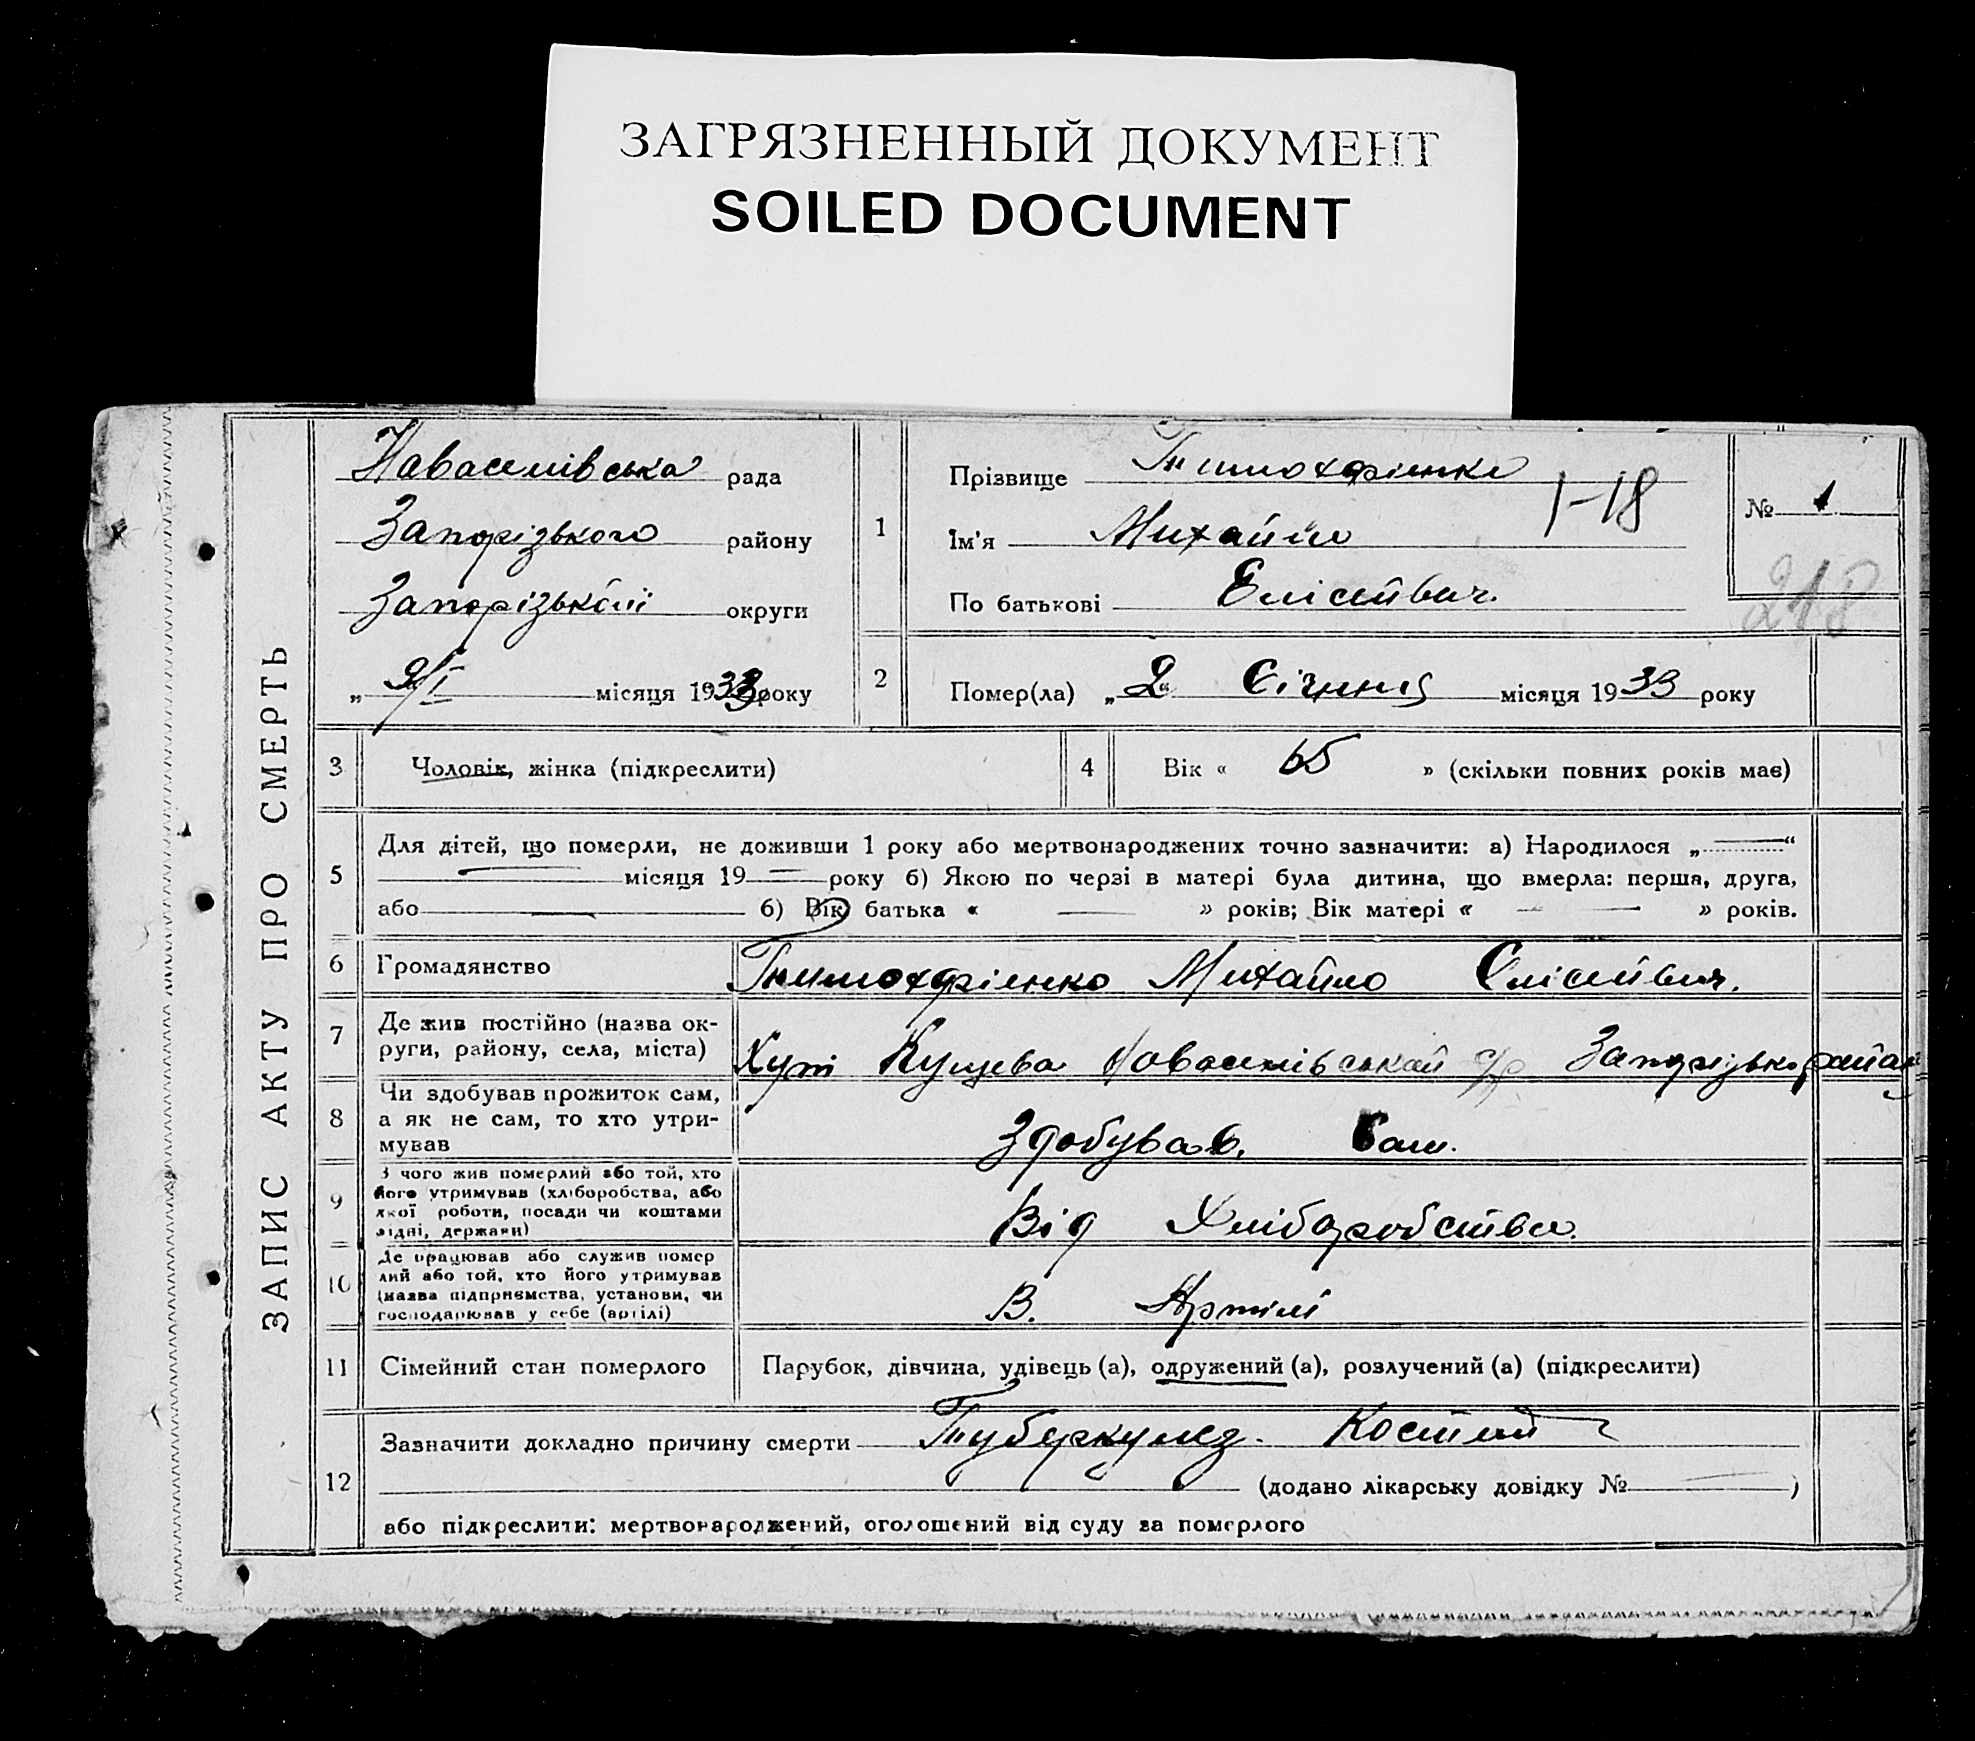 ЗАГРЯЗНЕННЫЙ ДОКУМЕНТ
SOILED DOCUMENT
ЗАПИС АКТУ ПРО СМЕРТЬ
Наваселівська рада
Запорізького району
Запорізької округи
„ 9/I місяця 1933 року
1
Прізвище Тимохфіенко
1-18
Ім'я Михайло
По батькові Єлісейвич.
№ 1
218
2
Помер(ла) „ 2 “ Січння місяця 1933 року
3 Чоловік, жінка (підкреслити)
4 Вік « 65 » (скільки повних років має)
5
Для дітей, що померли, не доживши 1 року або мертвонароджених точно зазначити: а) Народилося „ “
місяця 19 року б) Якою по черзі в матері була дитина, що вмерла: перша, друга,
або б) Вік батька « » років; Вік матері « » років.
6 Громадянство Тимохфіенко Михайло Єлісейвич.
7
Де жив постійно (назва ок-
руги, району, села, міста)
Хут Кущева Новоселівськай с/р Запорізько район
8
Чи здобував прожиток сам,
а як не сам, то хто утри-
мував
Здобував. Сам.
9
З чого жив померлий або той, хто
його утримував (хліборобства, або
якої роботи, посади чи коштами
рідні, держави)
Від Хліборобства.
10
Де працював або служив помер
лий або той, хто його утримував
(назва підприємства, установи, чи
господарював у себе (артілі)
В. Артілі
11 Сімейний стан померлого Парубок, дівчина, удівець (а), одружений (а), розлучений (а) (підкреслити)
12
Зазначити докладно причину смерти Туберкульоз.
(додано лікарську довідку № )
або підкреслити: мертвонароджений, оголошений від суду за померлого